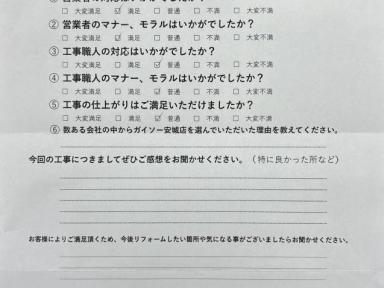 ① 営業者の対応はいかがでしたか？
□ 大変満足 ☑ 満足 □ 普通 □ 不満 □ 大変不満
② 営業者のマナー、モラルはいかがでしたか？
□ 大変満足 ☑ 満足 □ 普通 □ 不満 □ 大変不満
③ 工事職人の対応はいかがでしたか？
□ 大変満足 □ 満足 ☑ 普通 □ 不満 □ 大変不満
④ 工事職人のマナー、モラルはいかがでしたか？
□ 大変満足 □ 満足 ☑ 普通 □ 不満 □ 大変不満
⑤ 工事の仕上がりはご満足いただけましたか？
□ 大変満足 □ 満足 ☑ 普通 □ 不満 □ 大変不満
⑥ 数ある会社の中からガイソー安城店を選んでいただいた理由を教えてください。
今回の工事につきましてぜひご感想をお聞かせください。（特に良かった所など）
お客様によりご満足頂くため、今後リフォームしたい箇所や気になる事がございましたらお聞かせください。